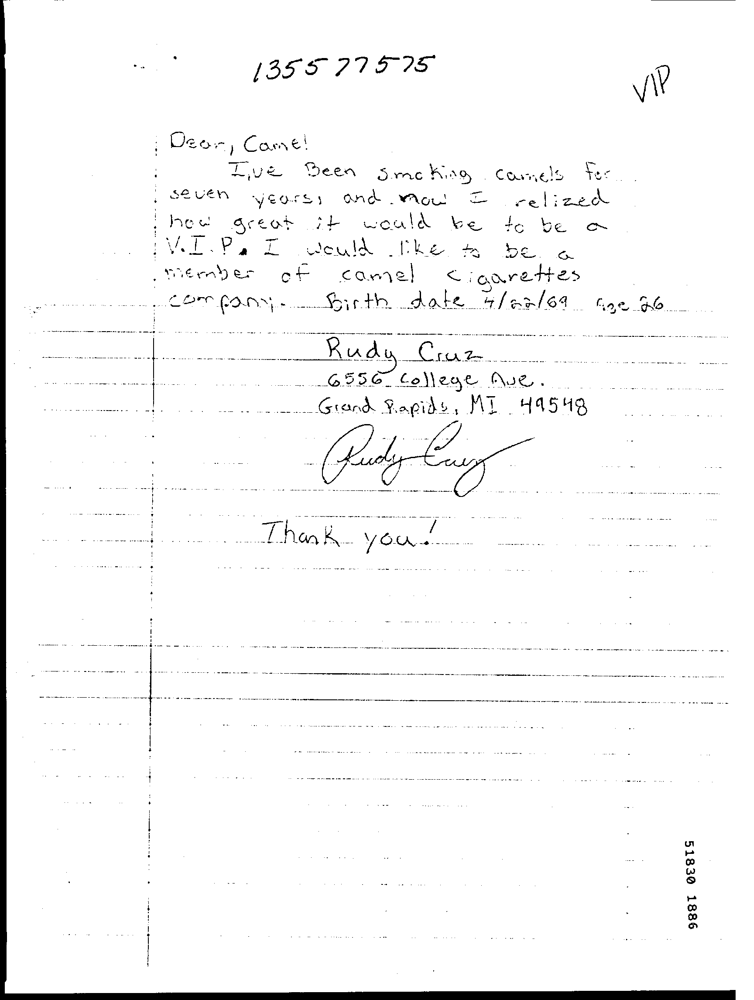 135577575
VIP
Dear, Camel
I,ve Been smoking camels for
seven years, and now I relized
how great it would be to be a
V.I.P. I would like to be a
member of camel cigarettes
company. Birth date 4/22/69 Age 26
Rudy Cruz
6556 College Ave.
Grand Rapids, MI 49548
Rudy Cruz
Thank you!
51830 1886